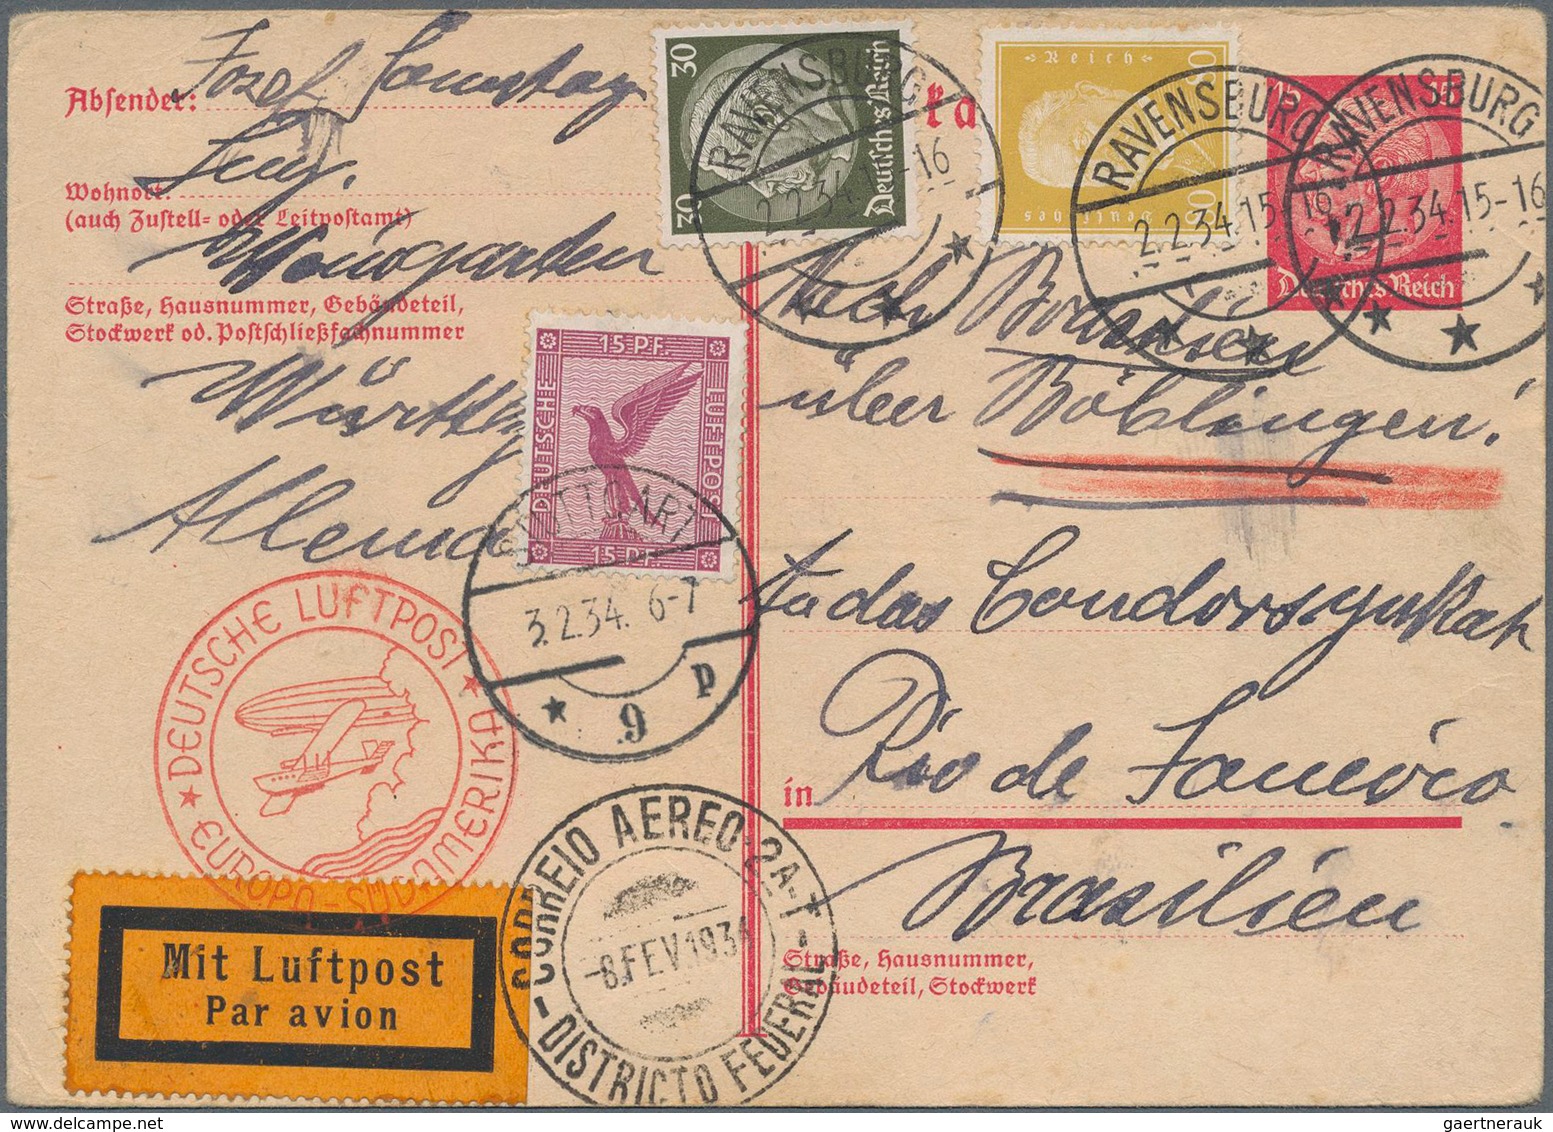 Absender:
Josef Sonntag
Ing.
Wohnort:
(auch Zustell- oder Leitpostamt)
Weingarten
Straße, Hausnummer, Gebäudeteil,
Stockwerk od. Postschließfachnummer
Württbg
30
30
Deutsches Reich
ka
Reich
Deutsches
RAVENSBURG
2.2.34.15-16
RAVENSBURG
2.2.34.15-16
RAVENSBURG
2.2.34.15-16
15
Deutsches Reich
15 PF.
DEUTSCHE
LUFTPOST
15 PF.
STUTTGART
3.2.34. 6-7
9 p
Nach Brasilien
über Böblingen!
An das Condorsyndikat
in Rio de Janeiro
Brasilien
Straße, Hausnummer,
Gebäudeteil, Stockwerk
DEUTSCHE LUFTPOST
EUROPA-SÜDAMERIKA
Mit Luftpost
Par avion
CORREIO AEREO-2A-T-
-8.FEV.1934
-DISTRICTO FEDERAL-
gaertnerauk / delcampe.net